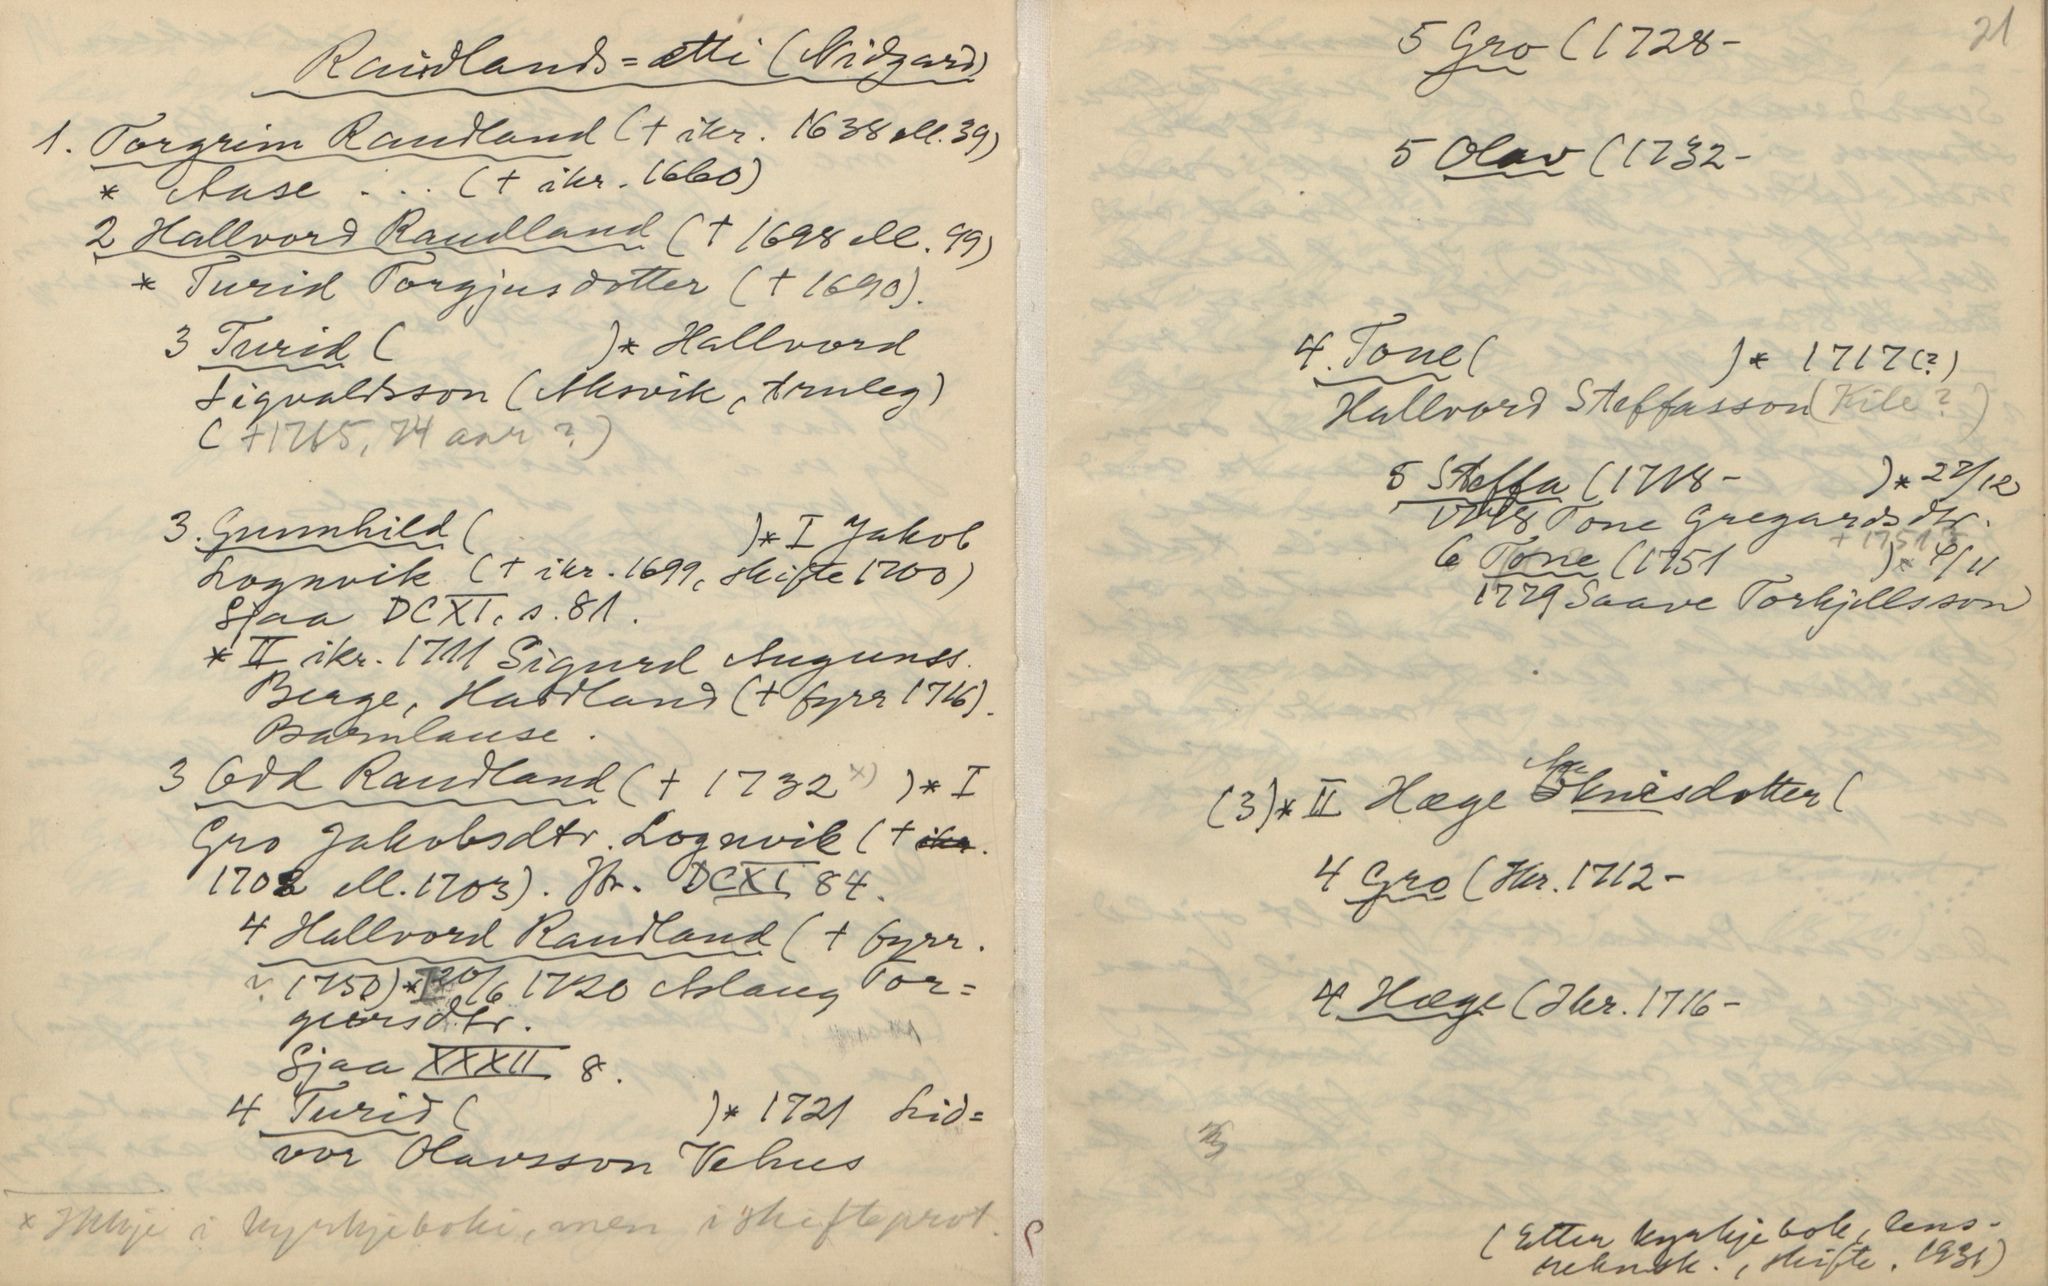 Raudlands=ætti (Nidgard)
1. Torgrim Raudland († ikr. 1638 ell. 39)
* Aase . . . († ikr. 1660)
2 Hallvord Raudland († 1698 ell. 99)
* Turid Torgjusdotter († 1690).
3 Turid ( )* Hallvord
Sigvaldsson (Aksvik, truleg)
( +1765, 74 aar ?)
3. Gunnhild ( )* I Jakob
Lognvik († ikr. 1699, skifte 1700)
Sjaa DCXI, s. 81.
* II ikr. 1711 Sigurd Augunss.
Berge, Haddland († fyrr 1716).
Barnlause.
3 Odd Raudland († 1732 x) )* I
Gro Jakobsdtr. Lognvik († ikr.
1702 ell. 1703). DCXI 84.
4 Hallvord Raudland († fyrr.
? 1750) * I 20/6 1720 Aslaug Tor=
geirsdtr.
Sjaa XXXII 8.
4 Turid ( )* 1721 Lid=
vor Olavsson Vehus
x Ikkje i kyrkjeboki, men i skifteprot.
21
5 Gro (1728-
5 Olav (1732-
4. Tone ( )* 1717(?)
Hallvord Steffasson (Kile?)
5 Steffa (1718- )* 27/12
Tone Gregardsdtr.
+ 1751
6 Tone (1751 )* 4/11
1779 Saave Torkjellsson
(3)* II Hæge
4 Gro (Ikr. 1712-
4 Hæge (Ikr. 1716-
(Etter kyrkjebok, lens-
reknsk., skifte. 1931)